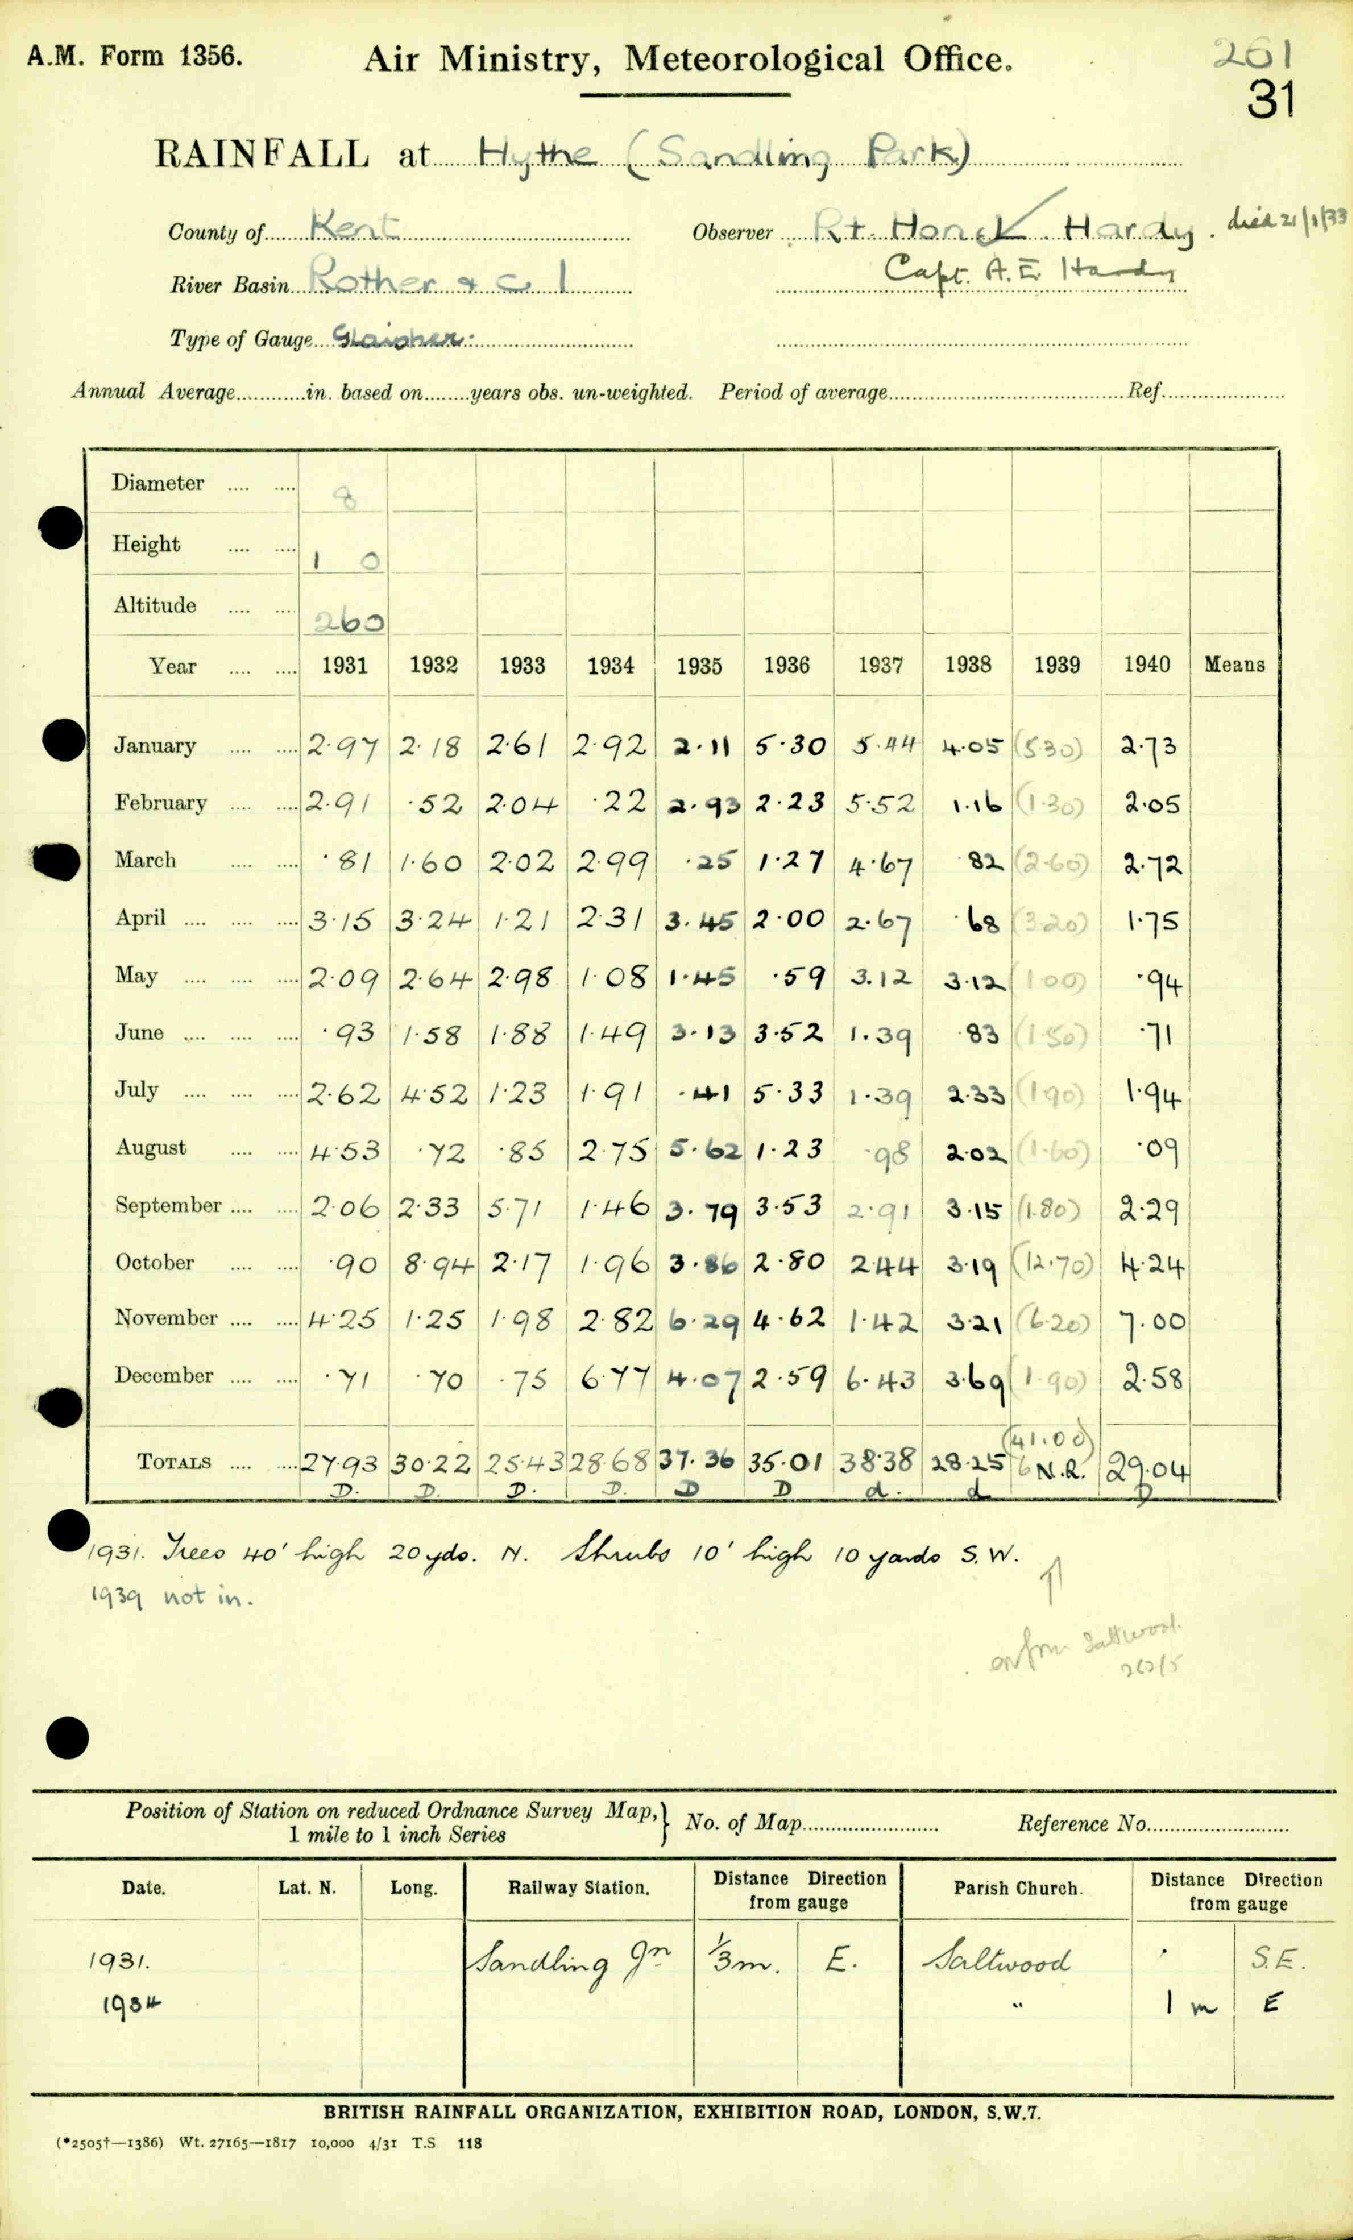 A.M. Form 1356. Air Ministry, Meteorological Office. 261
31
RAINFALL at Hythe (Sandling Park)
County of Kent Observer Rt. Hon. Hardy. died 21/1/33
Capt. A. E. Hardy
River Basin Rother & c 1
Type of Gauge Glaisher.
Annual Average............in. based on........years obs. un-weighted. Period of average........................Ref.....................
Diameter .... .... 8
Height .... .... 1 0
Altitude .... .... 260
Year .... .... 1931 1932 1933 1934 1935 1936 1937 1938 1939 1940 Means
January .... .... 2.97 2.18 2.61 2.92 2.11 5.30 5.44 4.05 (5.30) 2.73
February .... .... 2.91 .52 2.04 .22 2.93 2.23 5.52 1.16 (1.30) 2.05
March .... .... .81 1.60 2.02 2.99 .25 1.27 4.67 .82 (2.60) 2.72
April .... .... .... 3.15 3.24 1.21 2.31 3.45 2.00 2.67 .68 (3.20) 1.75
May .... .... .... 2.09 2.64 2.98 1.08 1.45 .59 3.12 3.12 (1.00) .94
June .... .... .... .93 1.58 1.88 1.49 3.13 3.52 1.39 .83 (1.50) .71
July .... .... .... 2.62 4.52 1.23 1.91 .41 5.33 1.39 2.33 (1.90) 1.94
August .... .... 4.53 .72 .85 2.75 5.62 1.23 .98 2.02 (1.60) .09
September .... .... 2.06 2.33 5.71 1.46 3.79 3.53 2.91 3.15 (1.80) 2.29
October .... .... .90 8.94 2.17 1.96 3.86 2.80 2.44 3.19 (12.70) 4.24
November .... .... 4.25 1.25 1.98 2.82 6.29 4.62 1.42 3.21 (6.20) 7.00
December .... .... .71 .70 .75 6.77 4.07 2.59 6.43 3.69 (1.90) 2.58
(41.00)
TOTALS .... .... 27.93 30.22 25.43 28.68 37.36 35.01 38.38 28.25 N.R. 29.04
D. D. D. D. D D d. d D
1931. Trees 40' high 20 yds. N. Shrubs 10' high 10 yards S.W.
1939 not in.
Saltwood.
262/5
Position of Station on reduced Ordnance Survey Map,} No. of Map........................ Reference No.........................
1 mile to 1 inch Series
Date. Lat. N. Long. Railway Station. Distance Direction from gauge Parish Church. Distance Direction from gauge
1931. Sandling Jn 1/3 m. E. Saltwood . S.E.
1934 " 1 m E
BRITISH RAINFALL ORGANIZATION, EXHIBITION ROAD, LONDON, S.W.7.
(*2505†—1386) Wt. 27165—1817 10,000 4/31 T.S 118